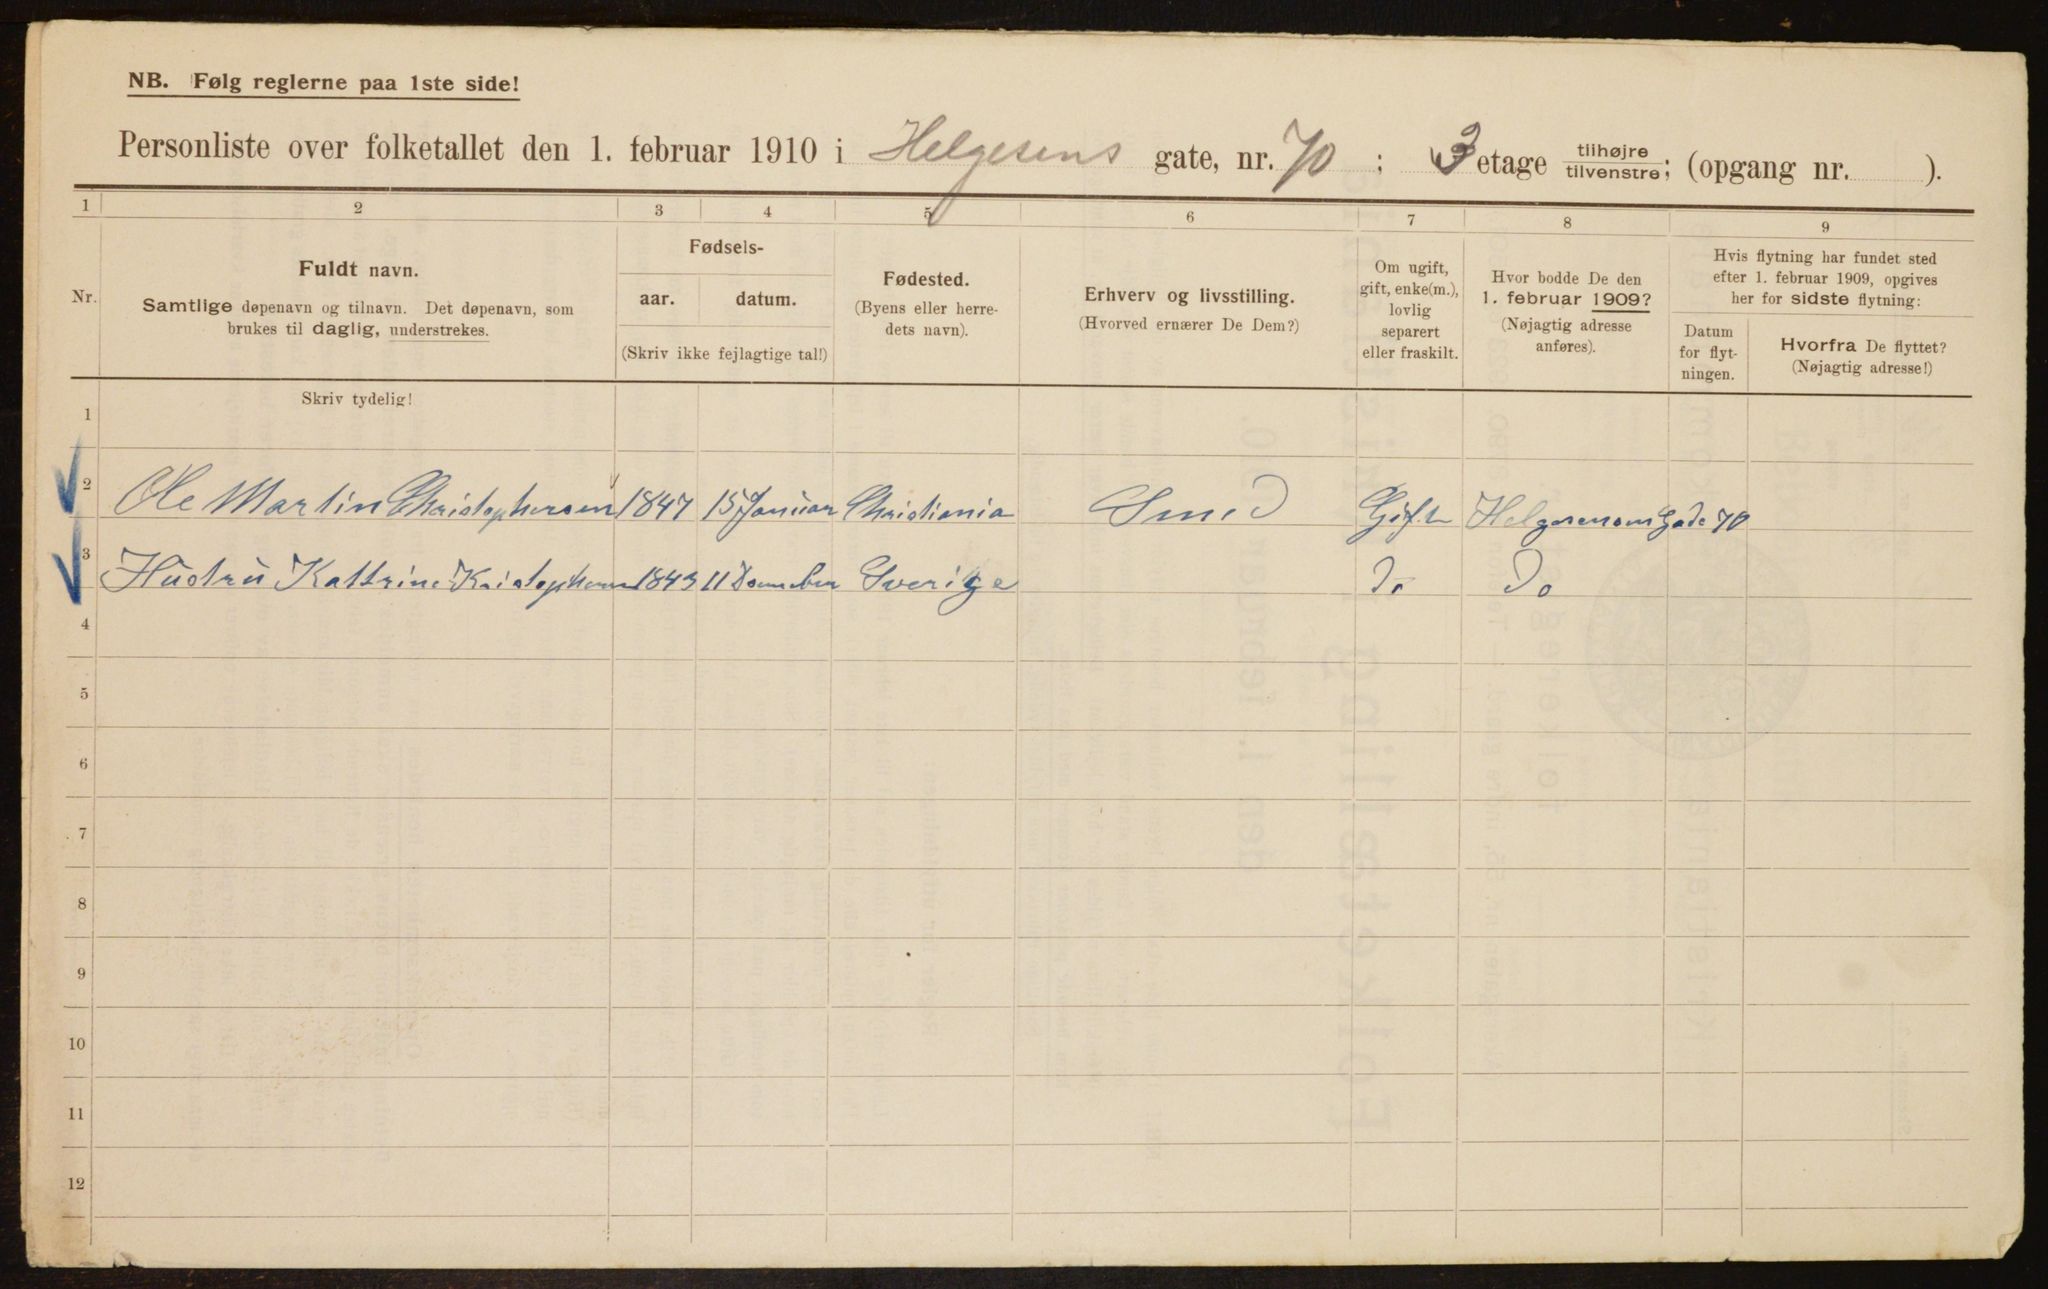 NB. Følg reglerne paa 1ste side!
Personliste over folketallet den 1. februar 1910 i Helgesens gate, nr. 70 ; 3 etage tilhøjre/tilvenstre; (opgang nr. ).
1 2 3 4 5 6 7 8 9
Nr.
Fuldt navn.
Samtlige døpenavn og tilnavn. Det døpenavn, som
brukes til daglig, understrekes.
Fødsels-
aar.
datum.
(Skriv ikke fejlagtige tal!)
Fødested.
(Byens eller herre-
dets navn).
Erhverv og livsstilling.
(Hvorved ernærer De Dem?)
Om ugift,
gift, enke(m.),
lovlig
separert
eller fraskilt.
Hvor bodde De den
1. februar 1909?
(Nøjagtig adresse
anføres).
Hvis flytning har fundet sted
efter 1. februar 1909, opgives
her for sidste flytning:
Datum
for flyt-
ningen.
Hvorfra De flyttet?
(Nøjagtig adresse!)
Skriv tydelig!
1
2 Ole Martin Christophersen 1847 15 Januar Christiania Smed Gift Helgesensens Gade 70
3 Hustru Kattrine Kristophersen 1843 11 Sverige Do Do
4
5
6
7
8
9
10
11
12